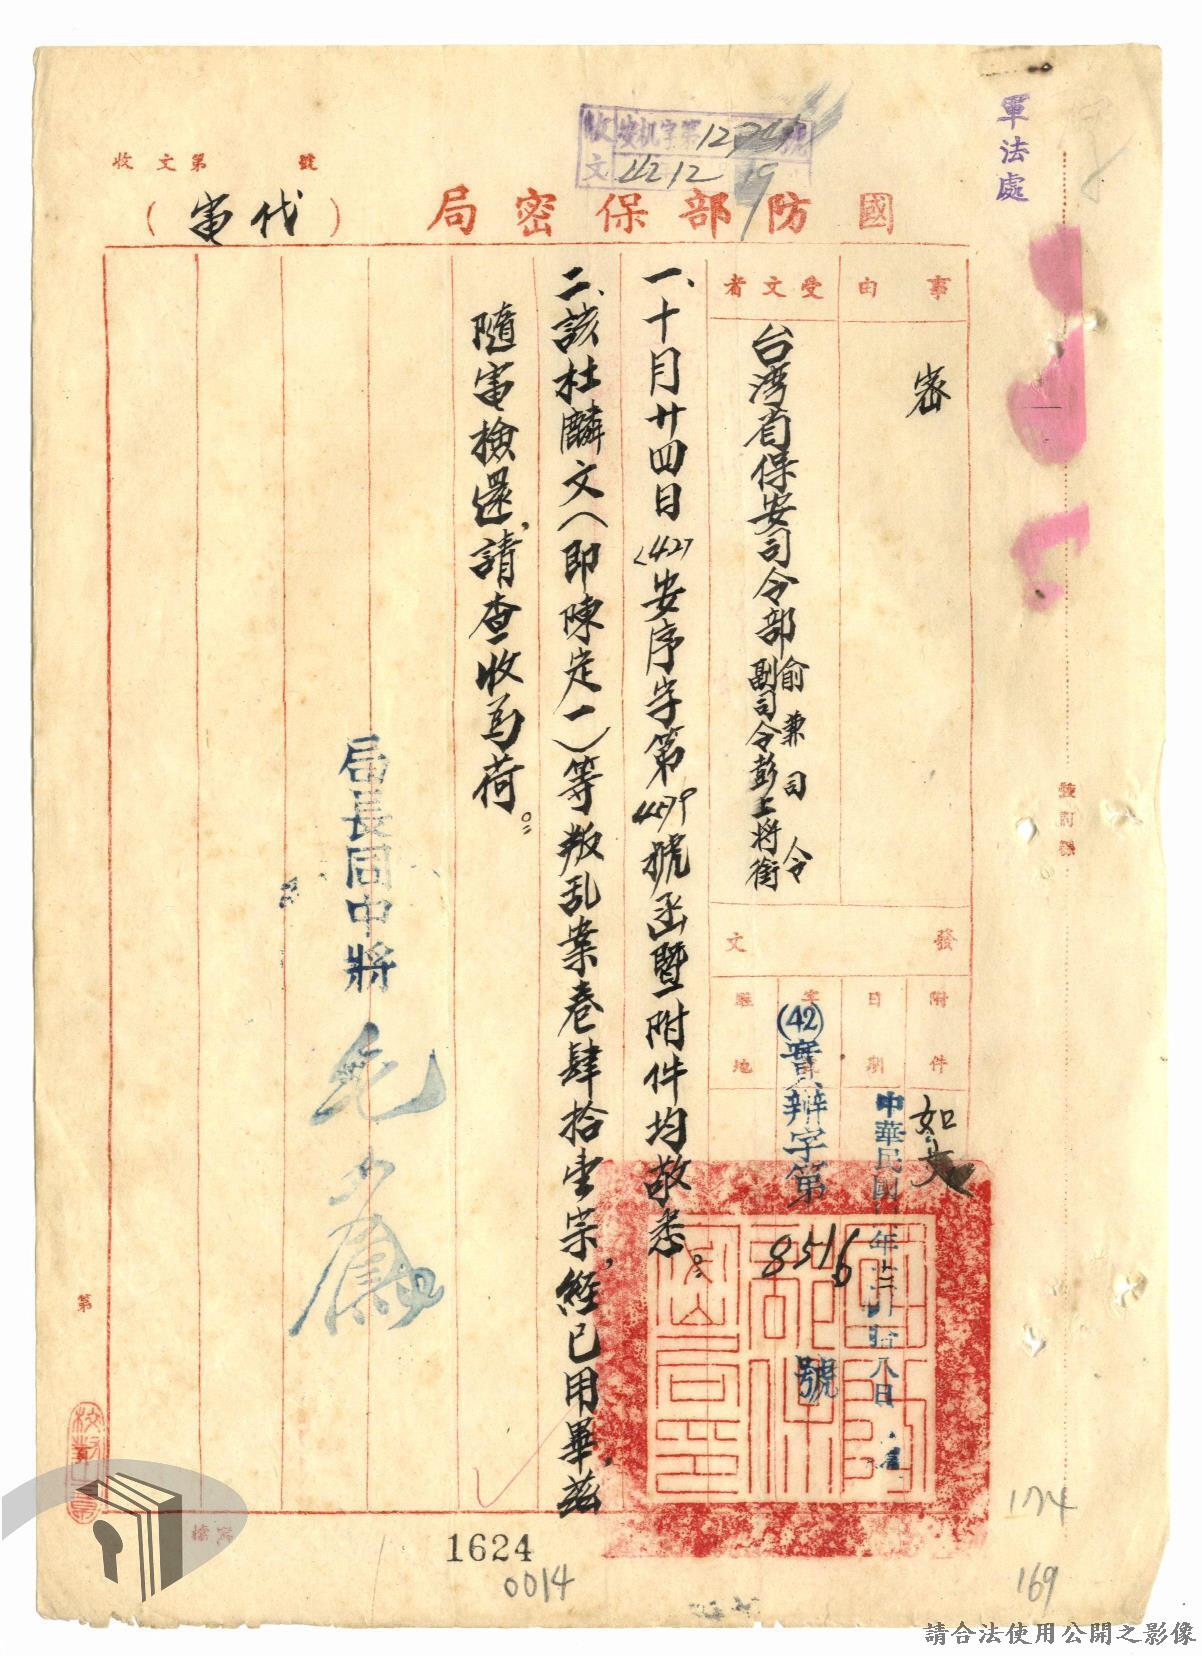 軍法處
收文 安机字第12 號
42 12 19
收文第 號
國防部保密局(代電)
事由
密
受文者
台湾省保安司令部 俞兼司令
副司令彭上將銜
發文
附件
如文
日期
中華民國 年十二月拾八日
字號
(42)實辦字第8516號
駐地
一、十月廿四日(42)安序字第4579號函暨附件均敬悉。
二、該杜麟文(即陳定一)等叛乱案卷肆拾壹宗,經已用畢,茲
隨電檢還,請查收為荷。
局長同中將
裝訂線
第
檔
1624
0014
174
169
請合法使用公開之影像